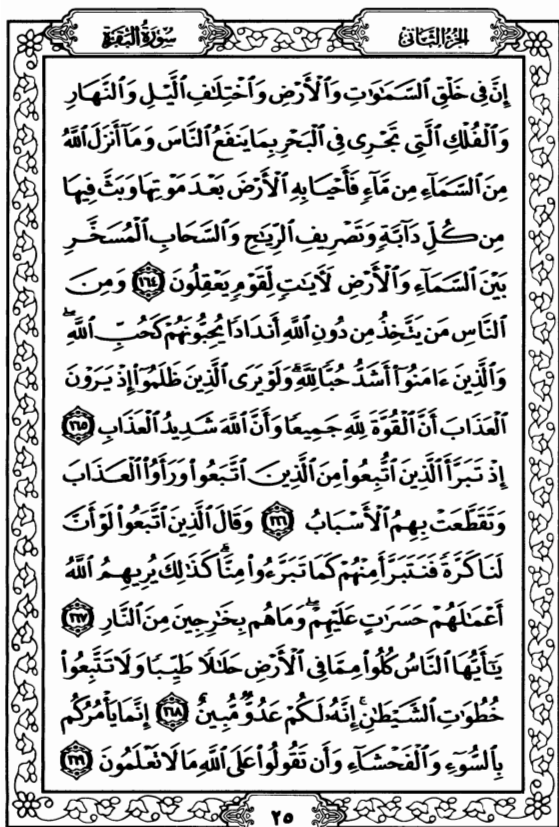 سُورَةُ البَقَرَةِ
الجُزْءُ الثَّانِي
إِنَّ فِي خَلْقِ ٱلسَّمَٰوَٰتِ وَٱلْأَرْضِ وَٱخْتِلَٰفِ ٱلَّيْلِ وَٱلنَّهَارِ
وَٱلْفُلْكِ ٱلَّتِي تَجْرِي فِي ٱلْبَحْرِ بِمَا يَنفَعُ ٱلنَّاسَ وَمَآ أَنزَلَ ٱللَّهُ
مِنَ ٱلسَّمَآءِ مِن مَّآءٍ فَأَحْيَا بِهِ ٱلْأَرْضَ بَعْدَ مَوْتِهَا وَبَثَّ فِيهَا
مِن كُلِّ دَآبَّةٍ وَتَصْرِيفِ ٱلرِّيَٰحِ وَٱلسَّحَابِ ٱلْمُسَخَّرِ
بَيْنَ ٱلسَّمَآءِ وَٱلْأَرْضِ لَأٓيَٰتٍ لِّقَوْمٍ يَعْقِلُونَ ١٦٤ وَمِنَ
ٱلنَّاسِ مَن يَتَّخِذُ مِن دُونِ ٱللَّهِ أَندَادًا يُحِبُّونَهُمْ كَحُبِّ ٱللَّهِۖ
وَٱلَّذِينَ ءَامَنُوٓا۟ أَشَدُّ حُبًّا لِّلَّهِۗ وَلَوْ يَرَى ٱلَّذِينَ ظَلَمُوٓا۟ إِذْ يَرَوْنَ
ٱلْعَذَابَ أَنَّ ٱلْقُوَّةَ لِلَّهِ جَمِيعًا وَأَنَّ ٱللَّهَ شَدِيدُ ٱلْعَذَابِ ١٦٥
إِذْ تَبَرَّأَ ٱلَّذِينَ ٱتُّبِعُوا۟ مِنَ ٱلَّذِينَ ٱتَّبَعُوا۟ وَرَأَوُا۟ ٱلْعَذَابَ
وَتَقَطَّعَتْ بِهِمُ ٱلْأَسْبَابُ ١٦٦ وَقَالَ ٱلَّذِينَ ٱتَّبَعُوا۟ لَوْ أَنَّ
لَنَا كَرَّةً فَنَتَبَرَّأَ مِنْهُمْ كَمَا تَبَرَّءُوا۟ مِنَّاۗ كَذَٰلِكَ يُرِيهِمُ ٱللَّهُ
أَعْمَٰلَهُمْ حَسَرَٰتٍ عَلَيْهِمْۖ وَمَا هُم بِخَٰرِجِينَ مِنَ ٱلنَّارِ ١٦٧
يَٰٓأَيُّهَا ٱلنَّاسُ كُلُوا۟ مِمَّا فِي ٱلْأَرْضِ حَلَٰلًا طَيِّبًا وَلَا تَتَّبِعُوا۟
خُطُوَٰتِ ٱلشَّيْطَٰنِۚ إِنَّهُۥ لَكُمْ عَدُوٌّ مُّبِينٌ ١٦٨ إِنَّمَا يَأْمُرُكُم
بِٱلسُّوٓءِ وَٱلْفَحْشَآءِ وَأَن تَقُولُوا۟ عَلَى ٱللَّهِ مَا لَا تَعْلَمُونَ ١٦٩
٢٥